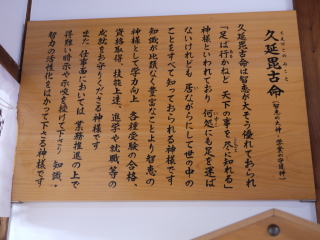 くえびこのみこと
久延毘古命
(智恵の大神・学業の守護神)
久延毘古命は智恵が大そう優れておられ
「足は行かねど 天下の事を 尽に知れる」
神様といわれており 何処にも足を運ば
ないけれども 居ながらにして世の中の
ことをすべて知っておられる神様です
知識が比類なく豊富なことより智恵の
神様として学力向上 各種受験の合格、
資格取得、技能上達、進学や就職等の
成就をお守りくださる神様です
また 仕事面においては 業務推進の上で
得難い暗示や示唆を授けて下さり 知識・
智力の活性化をはかって下さる神様です